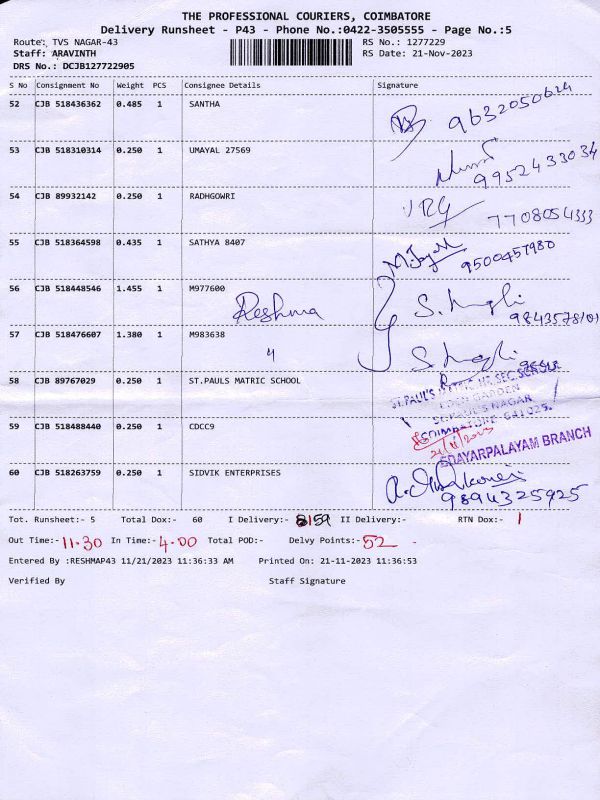 THE PROFESSIONAL COURIERS, COIMBATORE
Delivery Runsheet - P43 - Phone No.:0422-3505555 - Page No.:5
Route: TVS NAGAR-43 RS No.: 1277229
Staff: ARAVINTH RS Date: 21-Nov-2023
DRS No.: DCJB127722905
S No Consignment No Weight PCS Consignee Details Signature
52 CJB 518436362 0.485 1 SANTHA
9632050624
53 CJB 518310314 0.250 1 UMAYAL 27569
9952433034
54 CJB 89932142 0.250 1 RADHGOWRI
VRG 7708054333
55 CJB 518364598 0.435 1 SATHYA 8407
9500457980
56 CJB 518448546 1.455 1 M977600
Reshma
57 CJB 518476607 1.380 1 M983638
58 CJB 89767029 0.250 1 ST.PAULS MATRIC SCHOOL
ST.PAUL'S MATRIC HR.SEC.SCHOOL
EDEN GARDEN
ST.PAUL'S NAGAR
COIMBATORE 641025.
59 CJB 518488440 0.250 1 CDCC9
21/11/2023
EDAYARPALAYAM BRANCH
60 CJB 518263759 0.250 1 SIDVIK ENTERPRISES
9894325925
Tot. Runsheet:- 5 Total Dox:- 60 I Delivery:- 59 II Delivery:- RTN Dox:- 1
Out Time:- 11.30 In Time:- 4.00 Total POD:- Delvy Points:- 52
Entered By :RESHMAP43 11/21/2023 11:36:33 AM Printed On: 21-11-2023 11:36:53
Verified By Staff Signature